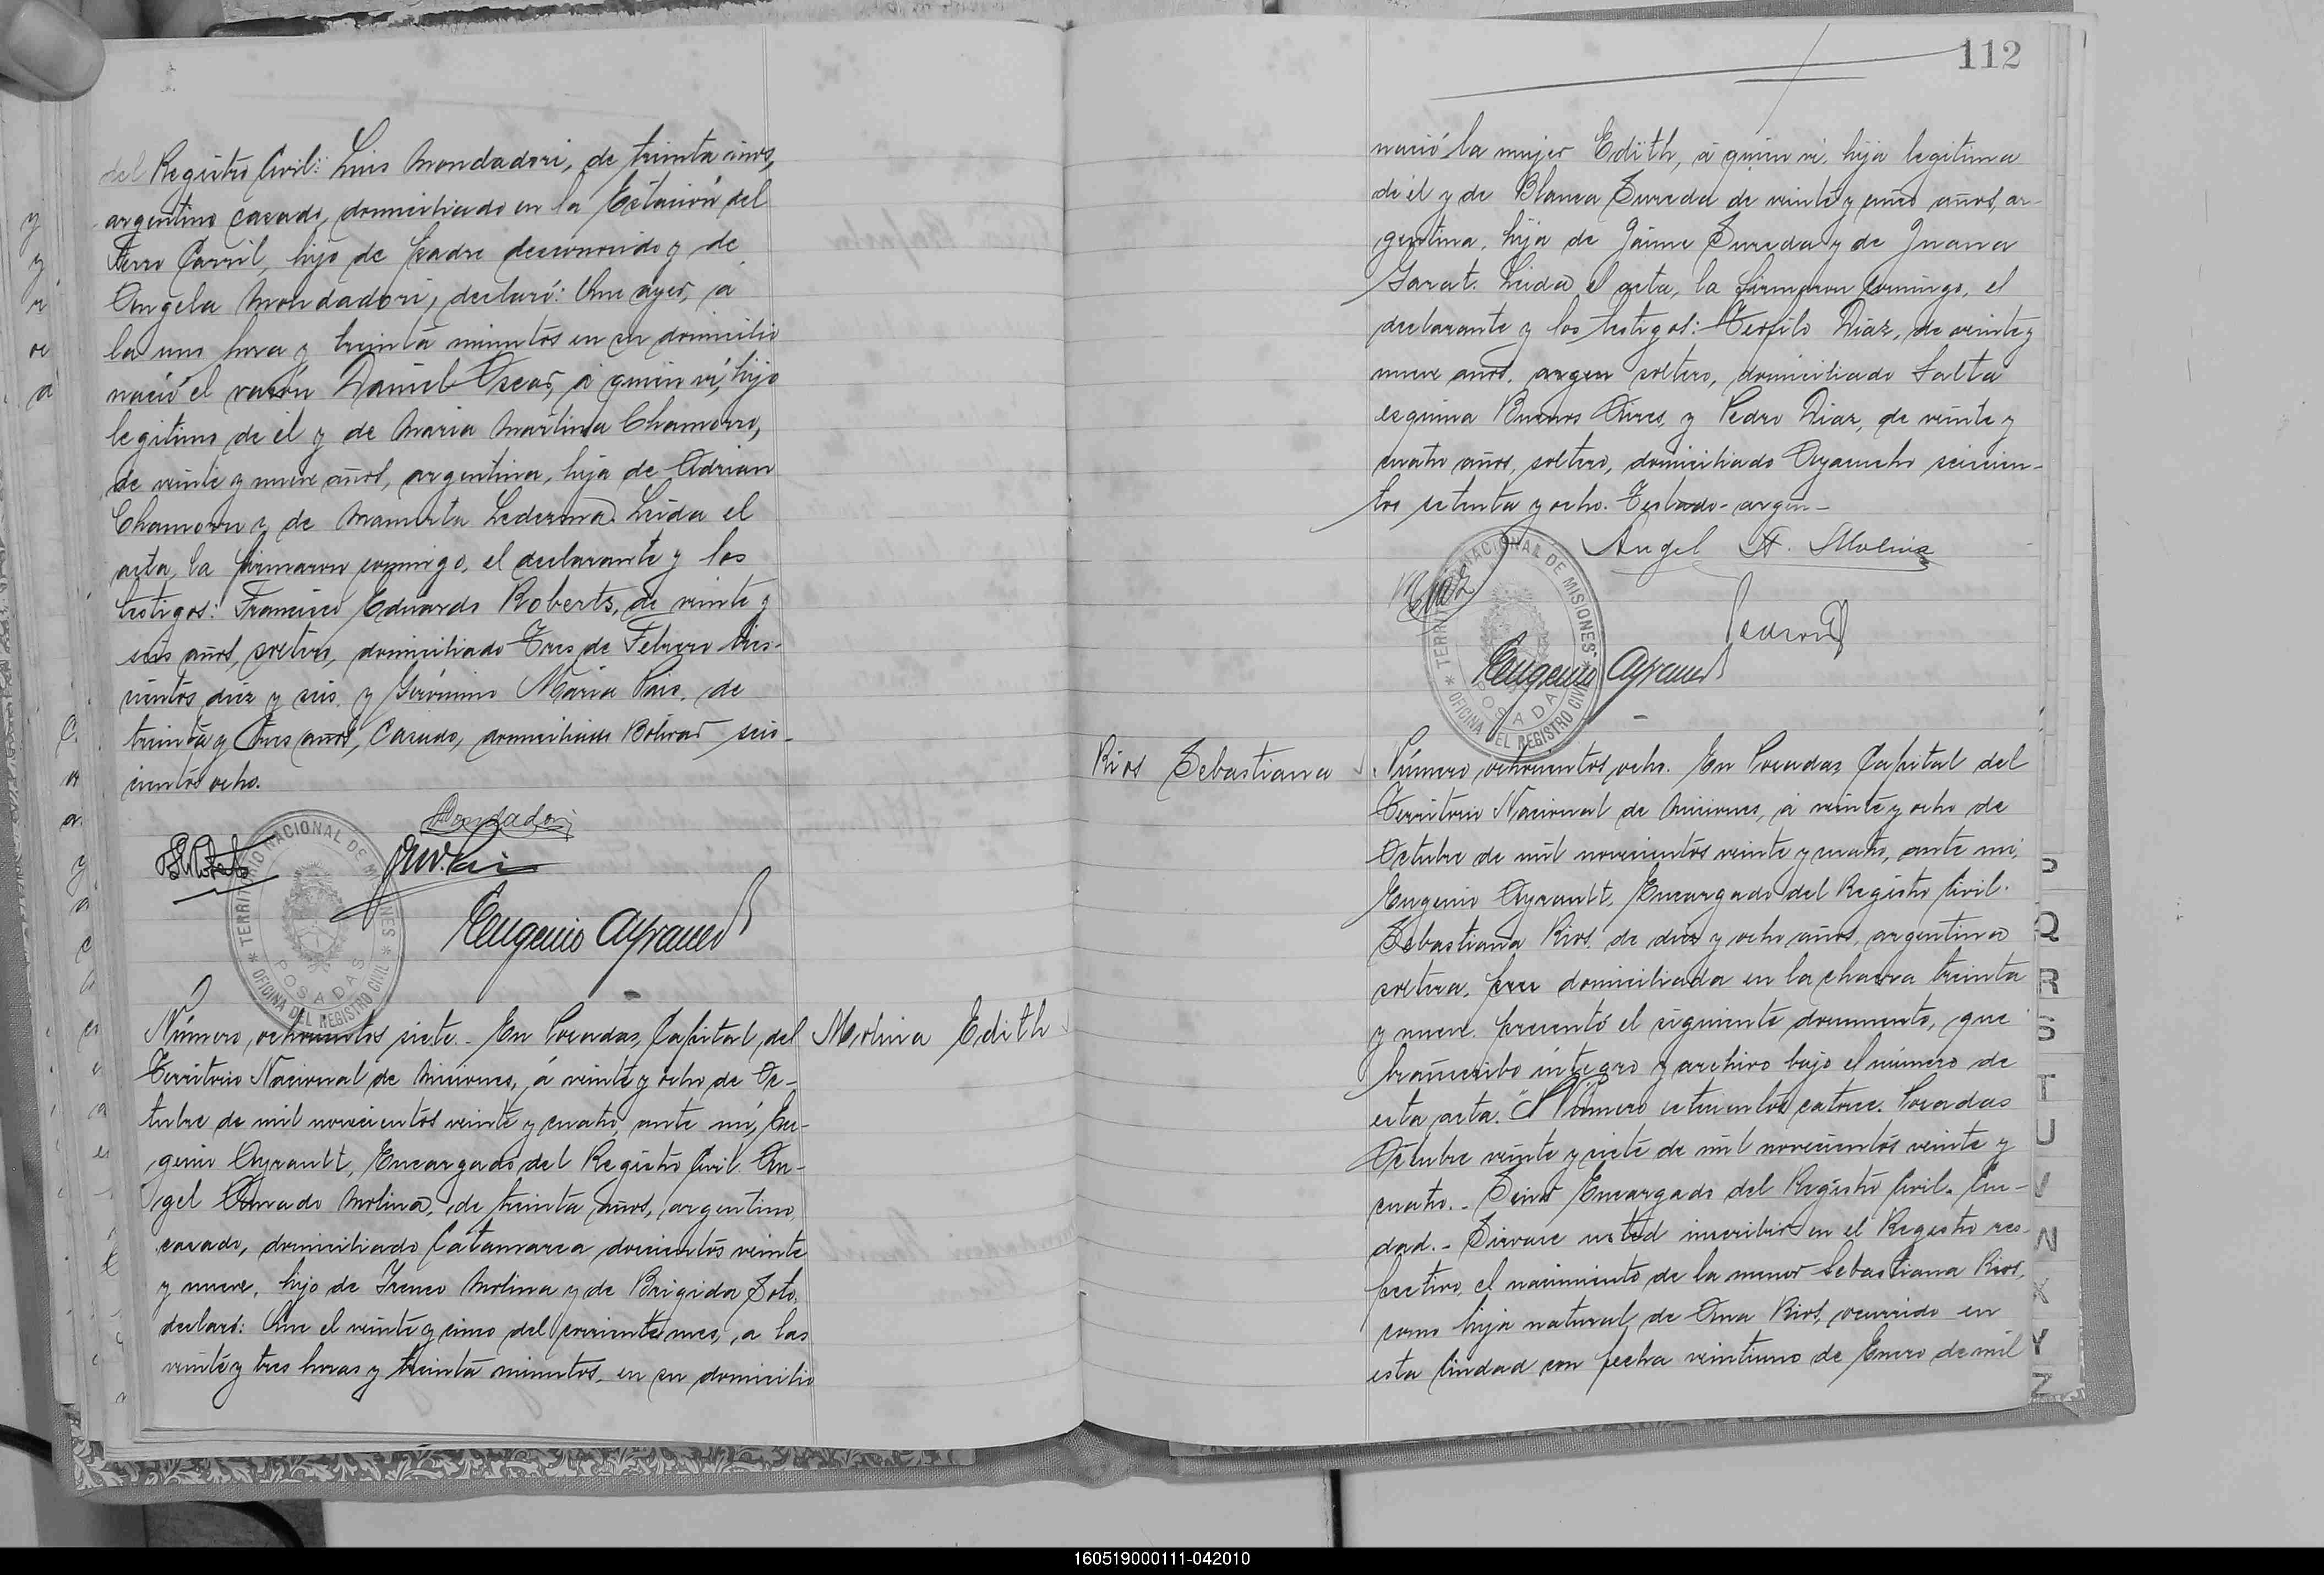 del Registro Civil: Luis Mondadori, de treinta años,
argentino casado, domiciliado en la Estación del
Ferro Carril, hijo de padre desconocido y de
Angela Mondadori, declaró: Que ayer, á
la una hora y treinta minutos en su domicilio
nació el varón Daniel Oscar, á quien vi, hijo
legitimo de él y de Maria Martina Chamorro,
de veinte y nueve años, argentina, hija de Adrian
Chamorro y de Mamerta Ledesma. Leida el
acta, la firmaron conmigo, el declarante y los
testigos: Francisco Eduardo Roberts, de veinte y
seis años, soltero, domiciliado Tres de Febrero tres-
cientos diez y seis, y Gerónimo Maria Pais, de
treinta y tres años, casado, domiciliado Bolivar seis-
cientos ocho.
Mondadori
TERRITORIO NACIONAL DE MISIONES
POSADAS
* OFICINA DEL REGISTRO CIVIL *
Eugenio Ayrault
Número ochocientos siete.- En Posadas, Capital del
Molina Edith
Territorio Nacional de Misiones, á veinte y ocho de Oc-
tubre de mil novecientos veinte y cuatro, ante mi, Eu-
genio Ayrault, Encargado del Registro Civil. An-
gel Amado Molina, de treinta años, argentino,
casado, domiciliado Catamarca doscientos veinte
y nueve, hijo de Ireneo Molina y de Brigida Soto,
declaró: Que el veinte y cinco del corriente mes, a las
veinte y tres horas y treinta minutos, en su domicilio
112
nació la mujer Edith, á quien vi, hija legitima
de él y de Blanca Sureda de veinte y cinco años, ar-
gentina, hija de Jaime Sureda y de Juana
Sarat. Leida el acta, la firmaron conmigo, el
declarante y los testigos: Teofilo Diaz, de veinte y
nueve años, argen soltero, domiciliado Salta
esquina Buenos Aires, y Pedro Diaz, de veinte y
cuatro años, soltero, domiciliado Ayacucho seiscien-
tos setenta y ocho. Testado- argen-
Angel A. Molina
TERRITORIO NACIONAL DE MISIONES
POSADAS
* OFICINA DEL REGISTRO CIVIL *
Eugenio Ayrault
Rios Sebastiana
Número ochocientos ocho. En Posadas, Capital del
Territorio Nacional de Misiones, á veinte y ocho de
Octubre de mil novecientos veinte y cuatro, ante mi,
Eugenio Ayrault, Encargado del Registro Civil.
Sebastiana Rios, de diez y ocho años, argentina
soltera, domiciliada en la chacra treinta
y nueve, presentó el siguiente documento, que
transcribo integro y archivo bajo el número de
esta acta. "Número setecientos catorce. Posadas
Octubre veinte y siete de mil novecientos veinte y
cuatro.- Señor Encargado del Registro Civil. Ciu-
dad.- Sirvase usted inscribir en el Registro res-
pectivo, el nacimiento de la menor Sebastiana Rios,
como hija natural de Ana Rios, ocurrido en
esta Ciudad con fecha veintiuno de Enero de mil
Q
R
S
T
U
V
X
Y
Z
160519000111-042010